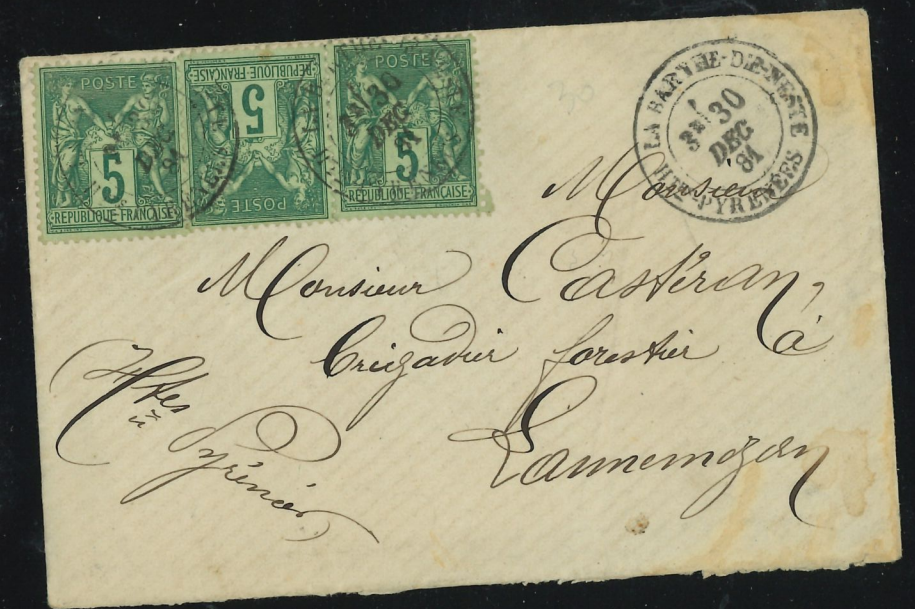 POSTE
5
REPUBLIQUE FRANÇAISE
REPUBLIQUE FRANÇAISE
5
POSTE
POSTE
5
REPUBLIQUE FRANÇAISE
DEC
81
30
DEC
81
LA BARTHE-DE-NESTE
30
DEC
81
PYRENEES
Monsieur
Monsieur Castéran,
Brigadier forestier à
Lannemezan
Htes
Pyrénées